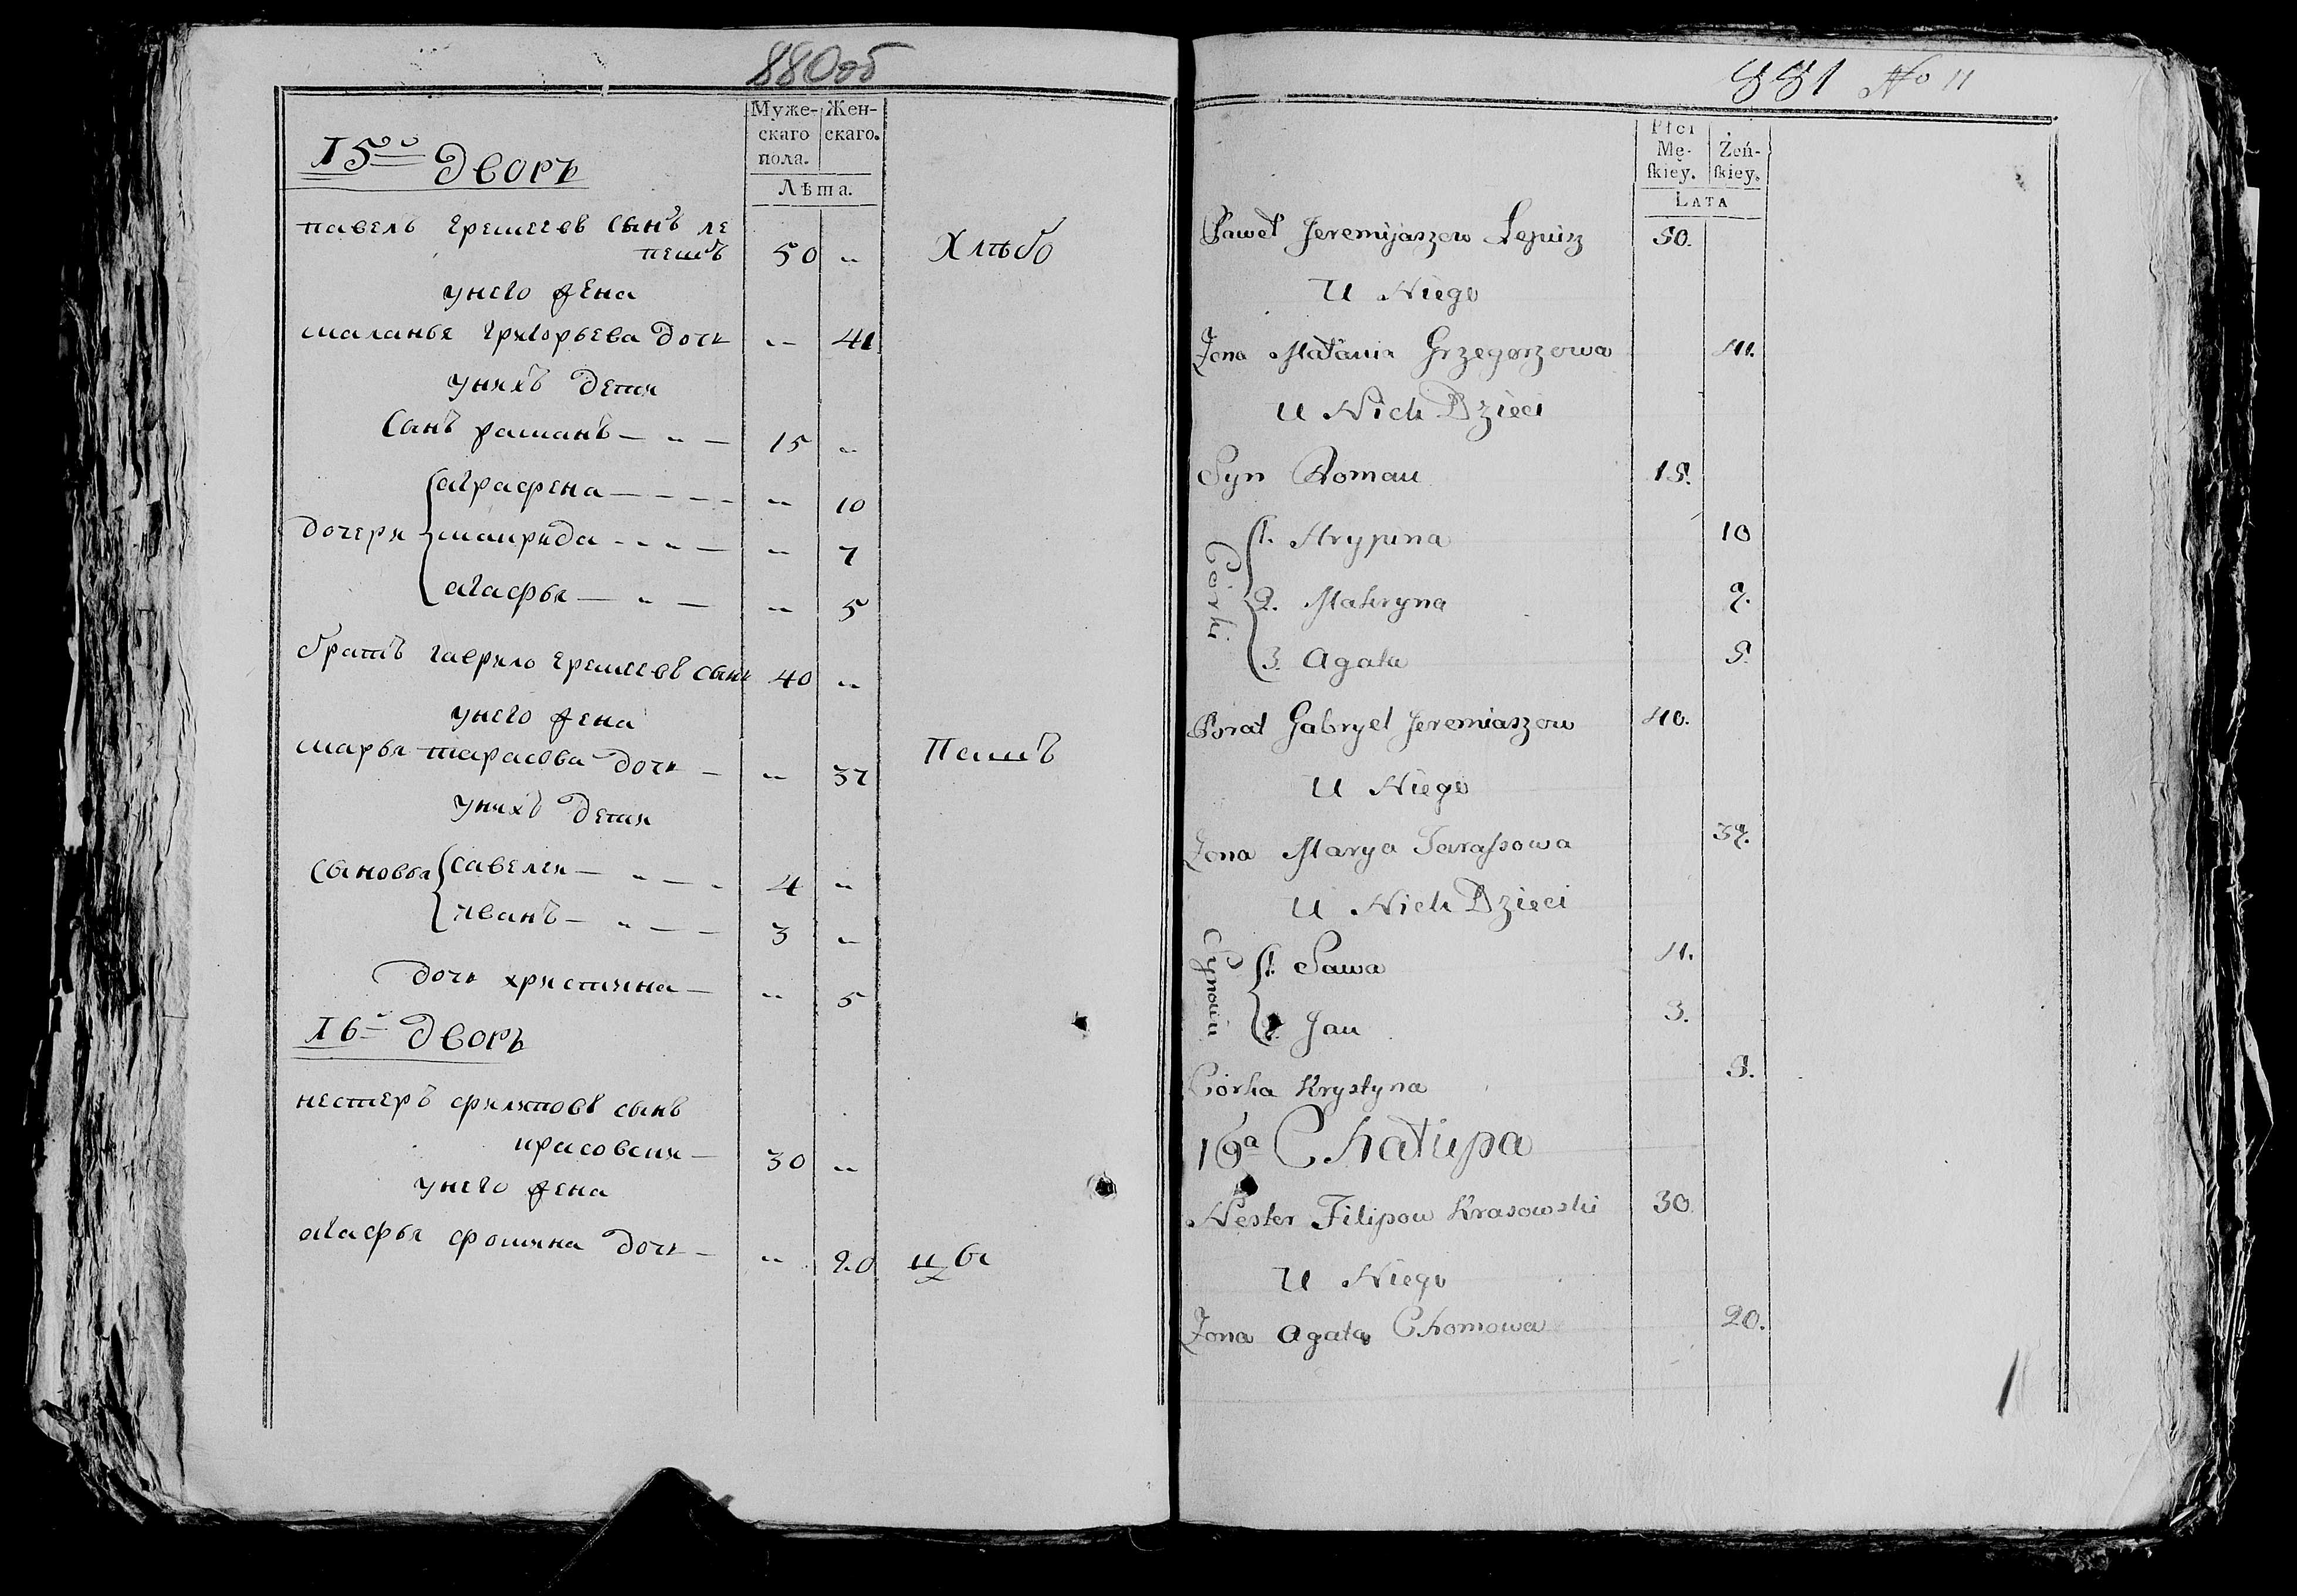 880об
Муже- Жен-
скаго скаго.
пола.
Лѣта.
15ой Дворъ
павелъ Еремеевъ Сынъ ле
пешъ 50 „
Хлѣбо
унего жена
маланья Григорьева дочь „ 41
унихъ дети
Сынъ раманъ — „ — 15 „
аграфена — — — — „ 10
дочери макрида - - „ — „ 7
агафья — „ — „ 5
братъ гаврило Еремеевъ сынъ 40 „
унего жена
марья тарасова дочь — „ 37
Пашъ
унихъ дети
Сыновья савелеи — „ — „ 4 „
иванъ — „ — — 3 „
дочь христина — „ 5
16й Дворъ
нестеръ филиповъ сынъ
красовски — 30 „
унего жена
агафья фомина дочь — „ 20
881 No 11
Płci
Mę- Żeń-
skiey. skiey.
LATA
Paweł Jeremijaszow Lepisz 50.
U Niego
Zona Małania Grzegorzowa 41.
U Nich Dzieci
Syn Roman 15.
Corki
1. Hrypina 10
2. Makryna 7.
3. Agata 5.
Brat Gabryel Jeremiaszow 40.
U Niego
Zona Marya Tarassowa 37.
U Nich Dzieci
Synowie
1. Sawa 4.
2. Jan 3.
Córka Krystyna 5.
16a Chałupa
Nester Filipow Krasowski 30.
U Niego
Zona Agata Chomowa 20.